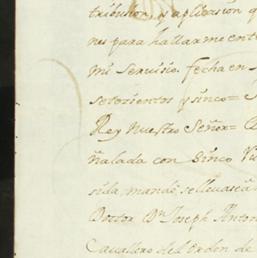 tribuson, y aplicasion q
nes para hallarme ent
mi servicio. fecha en
setezientos y sinco=
Rey Nuestro Señor=
ñalada con Sinco
sida, mande, se llevase a
Doctor Dn Joseph Anton
Cavallero del Orden de